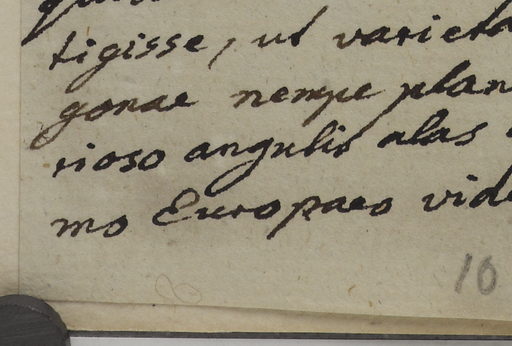 tigisse, ut varieta
gonae nempe plan
rioso angulis alas
mo Europaeo vide
10